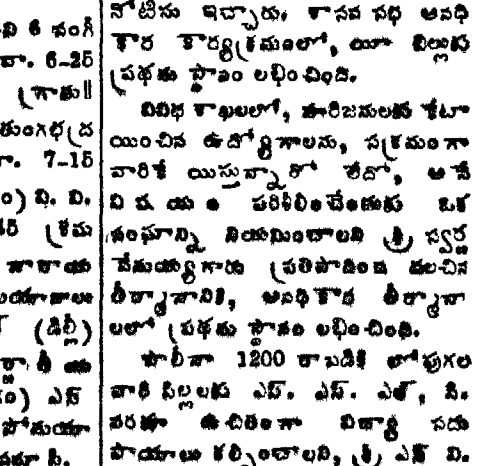 ని 6 వంగ్
వా. 6-25
గ్రాము॥
తుంగభద్ర
రా. 7-15
ం) వి. వి.
క్రమ
నారాయ
(డిల్లీ)
ం) ఎస్
నోటీసు ఇచ్చారు. శాసన సభ అనధి
కార కార్యక్రమంలో, యీ బిల్లుకు
ప్రథమ స్థానం లభించింది.
వివిధ శాఖలలో, హరిజనులకు కేటా
యించిన ఉద్యోగాలను, సక్రమంగా
వారికే యిస్తున్నారో లేదో, అనే
విషయం పరిశీలించేందుకు ఒక
సంఘాన్ని నియమించాలని శ్రీ స్వర్ణ
వేమయ్యగారు ప్రతిపాదించ దలచిన
తీర్మానానికి, అనధికార తీర్మానా
లలో ప్రథమ స్థానం లభించింది.
సాలీనా 1200 రాబడికి లోపుగల
వారి పిల్లలకు ఎస్. ఎస్. ఎల్, సి.
వరకూ ఉచితంగా విద్యార్థి సదు
పాయాలు కల్పించాలని, శ్రీ ఎస్ వి.